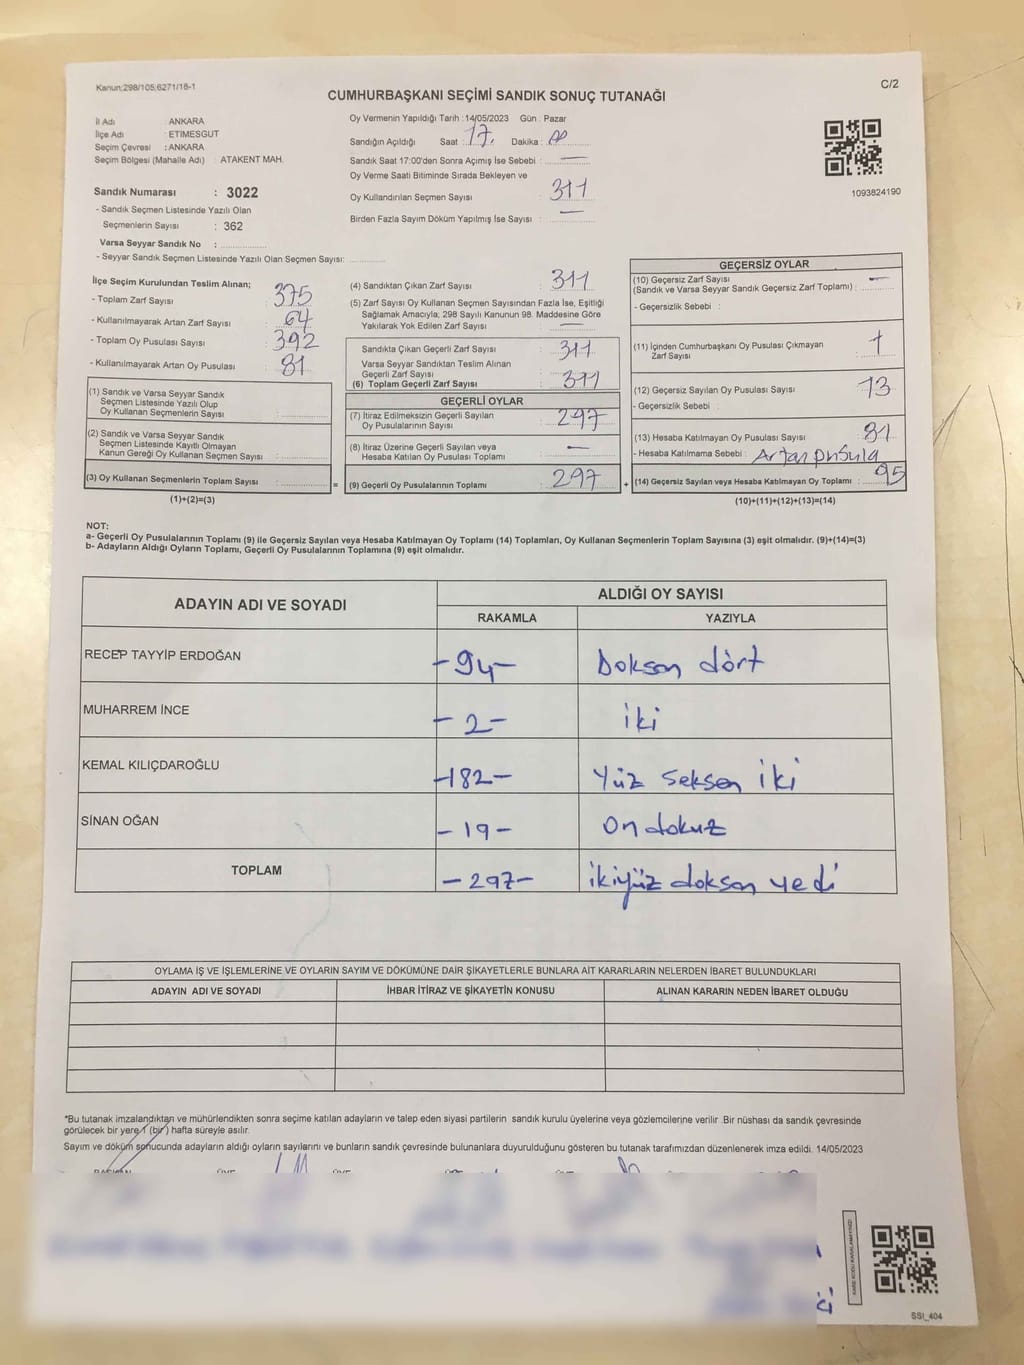 Kanun;298/105;6271/18-1
C/2
CUMHURBAŞKANI SEÇİMİ SANDIK SONUÇ TUTANAĞI
İl Adı : ANKARA
İlçe Adı : ETİMESGUT
Seçim Çevresi : ANKARA
Seçim Bölgesi (Mahalle Adı) : ATAKENT MAH.
Sandık Numarası : 3022
- Sandık Seçmen Listesinde Yazılı Olan
Seçmenlerin Sayısı : 362
Varsa Seyyar Sandık No :
- Seyyar Sandık Seçmen Listesinde Yazılı Olan Seçmen Sayısı:
Oy Vermenin Yapıldığı Tarih :14/05/2023 Gün : Pazar
Sandığın Açıldığı Saat : 17. Dakika : 00
Sandık Saat 17:00'den Sonra Açımış İse Sebebi : —
Oy Verme Saati Bitiminde Sırada Bekleyen ve
Oy Kullandırılan Seçmen Sayısı : 311
Birden Fazla Sayım Döküm Yapılmış İse Sayısı : —
1093824190
İlçe Seçim Kurulundan Teslim Alınan;
- Toplam Zarf Sayısı : 375
- Kullanılmayarak Artan Zarf Sayısı : 64
- Toplam Oy Pusulası Sayısı : 392
- Kullanılmayarak Artan Oy Pusulası : 81
(1) Sandık ve Varsa Seyyar Sandık
Seçmen Listesinde Yazılı Olup
Oy Kullanan Seçmenlerin Sayısı :
(2) Sandık ve Varsa Seyyar Sandık
Seçmen Listesinde Kayıtlı Olmayan
Kanun Gereği Oy Kullanan Seçmen Sayısı :
(3) Oy Kullanan Seçmenlerin Toplam Sayısı :
(1)+(2)=(3)
=
(4) Sandıktan Çıkan Zarf Sayısı : 311
(5) Zarf Sayısı Oy Kullanan Seçmen Sayısından Fazla İse, Eşitliği
Sağlamak Amacıyla; 298 Sayılı Kanunun 98. Maddesine Göre
Yakılarak Yok Edilen Zarf Sayısı : —
Sandıkta Çıkan Geçerli Zarf Sayısı : 311
Varsa Seyyar Sandıktan Teslim Alınan
Geçerli Zarf Sayısı :
(6) Toplam Geçerli Zarf Sayısı : 311
GEÇERLİ OYLAR
(7) İtiraz Edilmeksizin Geçerli Sayılan
Oy Pusulalarının Sayısı : 297
(8) İtiraz Üzerine Geçerli Sayılan veya
Hesaba Katılan Oy Pusulası Toplamı : —
(9) Geçerli Oy Pusulalarının Toplamı : 297
+
GEÇERSİZ OYLAR
(10) Geçersiz Zarf Sayısı —
(Sandık ve Varsa Seyyar Sandık Geçersiz Zarf Toplamı) :
- Geçersizlik Sebebi :
(11) İçinden Cumhurbaşkanı Oy Pusulası Çıkmayan
Zarf Sayısı : 1
(12) Geçersiz Sayılan Oy Pusulası Sayısı : 13
- Geçersizlik Sebebi :
(13) Hesaba Katılmayan Oy Pusulası Sayısı : 81
- Hesaba Katılmama Sebebi : Artan pusula
(14) Geçersiz Sayılan veya Hesaba Katılmayan Oy Toplamı : 95
(10)+(11)+(12)+(13)=(14)
NOT:
a- Geçerli Oy Pusulalarının Toplamı (9) ile Geçersiz Sayılan veya Hesaba Katılmayan Oy Toplamı (14) Toplamları, Oy Kullanan Seçmenlerin Toplam Sayısına (3) eşit olmalıdır. (9)+(14)=(3)
b- Adayların Aldığı Oyların Toplamı, Geçerli Oy Pusulalarının Toplamına (9) eşit olmalıdır.
ADAYIN ADI VE SOYADI
ALDIĞI OY SAYISI
RAKAMLA YAZIYLA
RECEP TAYYİP ERDOĞAN -94- Doksan dört
MUHARREM İNCE -2- iki
KEMAL KILIÇDAROĞLU -182- Yüz Seksen iki
SİNAN OĞAN -19- On dokuz
TOPLAM -297- ikiyüz doksan yedi
OYLAMA İŞ VE İŞLEMLERİNE VE OYLARIN SAYIM VE DÖKÜMÜNE DAİR ŞİKAYETLERLE BUNLARA AİT KARARLARIN NELERDEN İBARET BULUNDUKLARI
ADAYIN ADI VE SOYADI İHBAR İTİRAZ VE ŞİKAYETİN KONUSU ALINAN KARARIN NEDEN İBARET OLDUĞU
*Bu tutanak imzalandıktan ve mühürlendikten sonra seçime katılan adayların ve talep eden siyasi partilerin sandık kurulu üyelerine veya gözlemcilerine verilir .Bir nüshası da sandık çevresinde
görülecek bir yere 1 (bir) hafta süreyle asılır.
Sayım ve döküm sonucunda adayların aldığı oyların sayılarını ve bunların sandık çevresinde bulunanlara duyurulduğunu gösteren bu tutanak tarafımızdan düzenlenerek imza edildi. 14/05/2023
KARE KODU KARALAMAYINIZ!
SSI_404